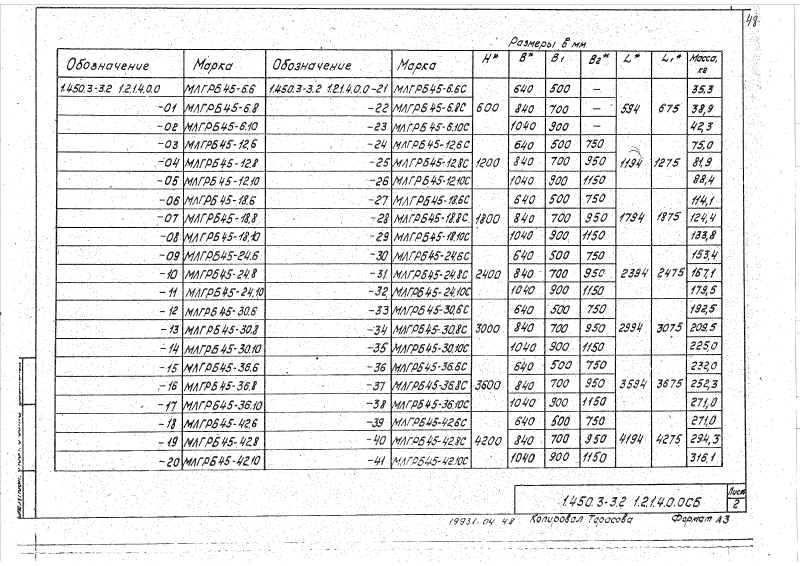 48
Размеры в мм
Обозначение Марка Обозначение Марка H* B* B1 B2* L* L1* Масса, кг
1.450.3-3.2 1.2.1.4.0.0 МЛГРБ45-6.6 1.450.3-3.2 1.2.1.4.0.0-21 МЛГРБ45-6.6С 600 640 500 — 594 675 35,3
-01 МЛГРБ45-6.8 -22 МЛГРБ45-6.8С 840 700 — 38,9
-02 МЛГРБ45-6.10 -23 МЛГРБ45-6.10С 1040 900 — 42,3
-03 МЛГРБ45-12.6 -24 МЛГРБ45-12.6С 1200 640 500 750 1194 1275 75,0
-04 МЛГРБ45-12.8 -25 МЛГРБ45-12.8С 840 700 950 81,9
-05 МЛГРБ45-12.10 -26 МЛГРБ45-12.10С 1040 900 1150 88,4
-06 МЛГРБ45-18.6 -27 МЛГРБ45-18.6С 1800 640 500 750 1794 1875 114,1
-07 МЛГРБ45-18.8 -28 МЛГРБ45-18.8С 840 700 950 124,4
-08 МЛГРБ45-18.10 -29 МЛГРБ45-18.10С 1040 900 1150 133,8
-09 МЛГРБ45-24.6 -30 МЛГРБ45-24.6С 2400 640 500 750 2394 2475 153,4
-10 МЛГРБ45-24.8 -31 МЛГРБ45-24.8С 840 700 950 167,1
-11 МЛГРБ45-24.10 -32 МЛГРБ45-24.10С 1040 900 1150 179,5
-12 МЛГРБ45-30.6 -33 МЛГРБ45-30.6С 3000 640 500 750 2994 3075 192,5
-13 МЛГРБ45-30.8 -34 МЛГРБ45-30.8С 840 700 950 209,5
-14 МЛГРБ45-30.10 -35 МЛГРБ45-30.10С 1040 900 1150 225,0
-15 МЛГРБ45-36.6 -36 МЛГРБ45-36.6С 3600 640 500 750 3594 3675 232,0
-16 МЛГРБ45-36.8 -37 МЛГРБ45-36.8С 840 700 950 252,3
-17 МЛГРБ45-36.10 -38 МЛГРБ45-36.10С 1040 900 1150 271,0
-18 МЛГРБ45-42.6 -39 МЛГРБ45-42.6С 4200 640 500 750 4194 4275 271,0
-19 МЛГРБ45-42.8 -40 МЛГРБ45-42.8С 840 700 950 294,3
-20 МЛГРБ45-42.10 -41 МЛГРБ45-42.10С 1040 900 1150 316,1
1.450.3-3.2 1.2.1.4.0.0СБ
Лист
2
19931-04 48 Копировал Тарасова Формат А3